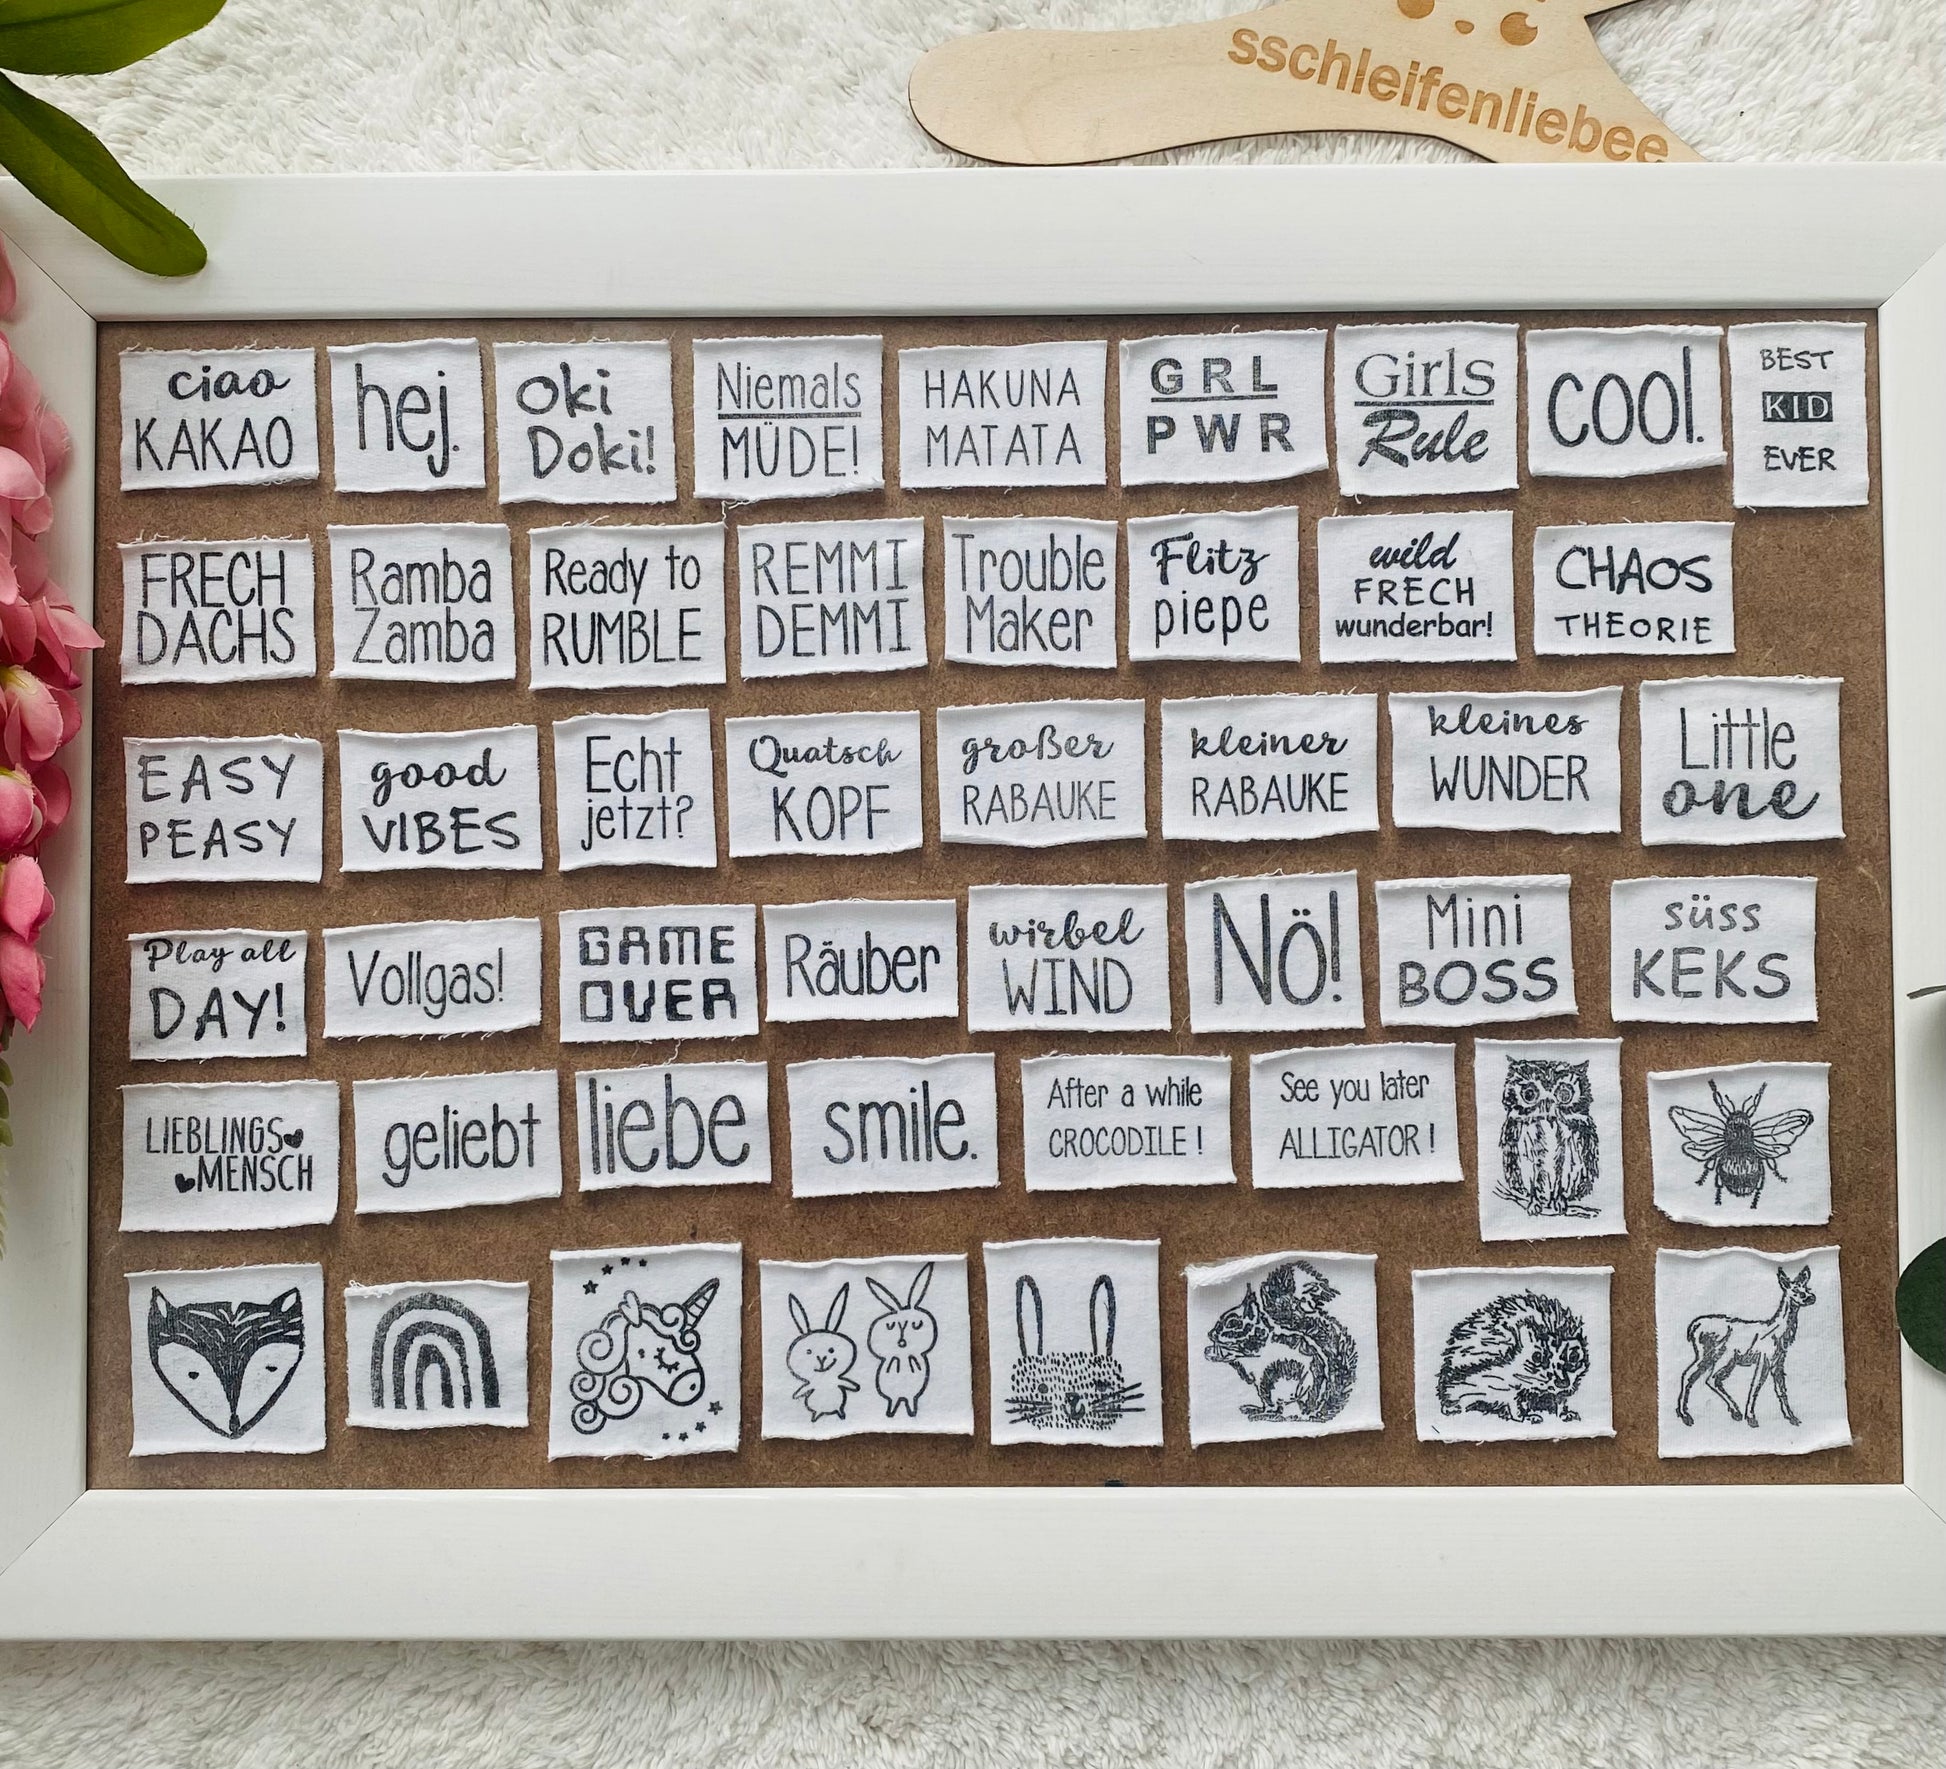 sschleifenliebee
ciao
KAKAO
hej.
Oki
Doki!
Niemals
MÜDE!
HAKUNA
MATATA
GRL
PWR
Girls
Rule
cool.
BEST
KID
EVER
FRECH
DACHS
Ramba
Zamba
Ready to
RUMBLE
REMMI
DEMMI
Trouble
Maker
Flitz
piepe
wild
FRECH
wunderbar!
CHAOS
THEORIE
EASY
PEASY
good
VIBES
Echt
jetzt?
Quatsch
KOPF
großer
RABAUKE
kleiner
RABAUKE
kleines
WUNDER
Little
one
Play all
DAY!
Vollgas!
GAME
OVER
Räuber
wirbel
WIND
Nö!
Mini
BOSS
süss
KEKS
LIEBLINGS
MENSCH
geliebt
liebe
smile.
After a while
CROCODILE!
See you later
ALLIGATOR!